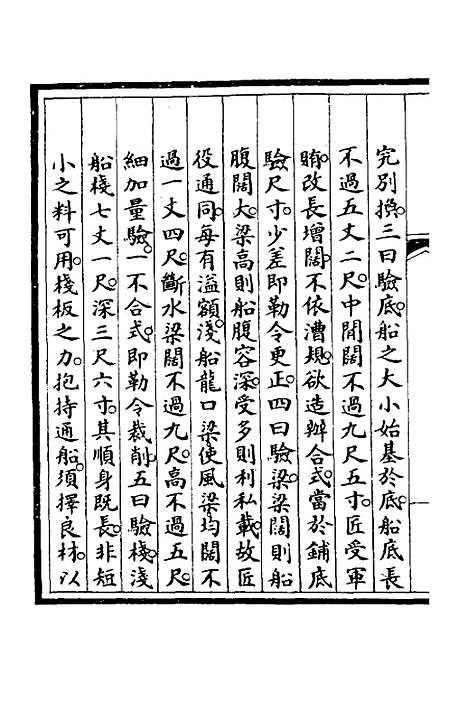 究別換。三曰驗底。船之大小始基於底。船底長
不過五丈二尺。中間闊不過九尺五寸。匠受軍
賄。改長增闊。不依漕規。欲造辦合式。當於鋪底
驗尺寸。少差即勒令更正。四曰驗梁。梁闊則船
腹闊大。梁高則船腹容深。受多則利私載。故匠
役通同。每有溢額。淺船龍口梁使風梁均闊不
過一丈四尺。斷水梁闊不過九尺。高不過五尺。
細加量驗。一不合式。即勒令裁削。五曰驗棧。淺
船棧七丈一尺。深三尺六寸。其順身既長。非短
小之料可用。棧板之力。抱持通船。須擇良材。以